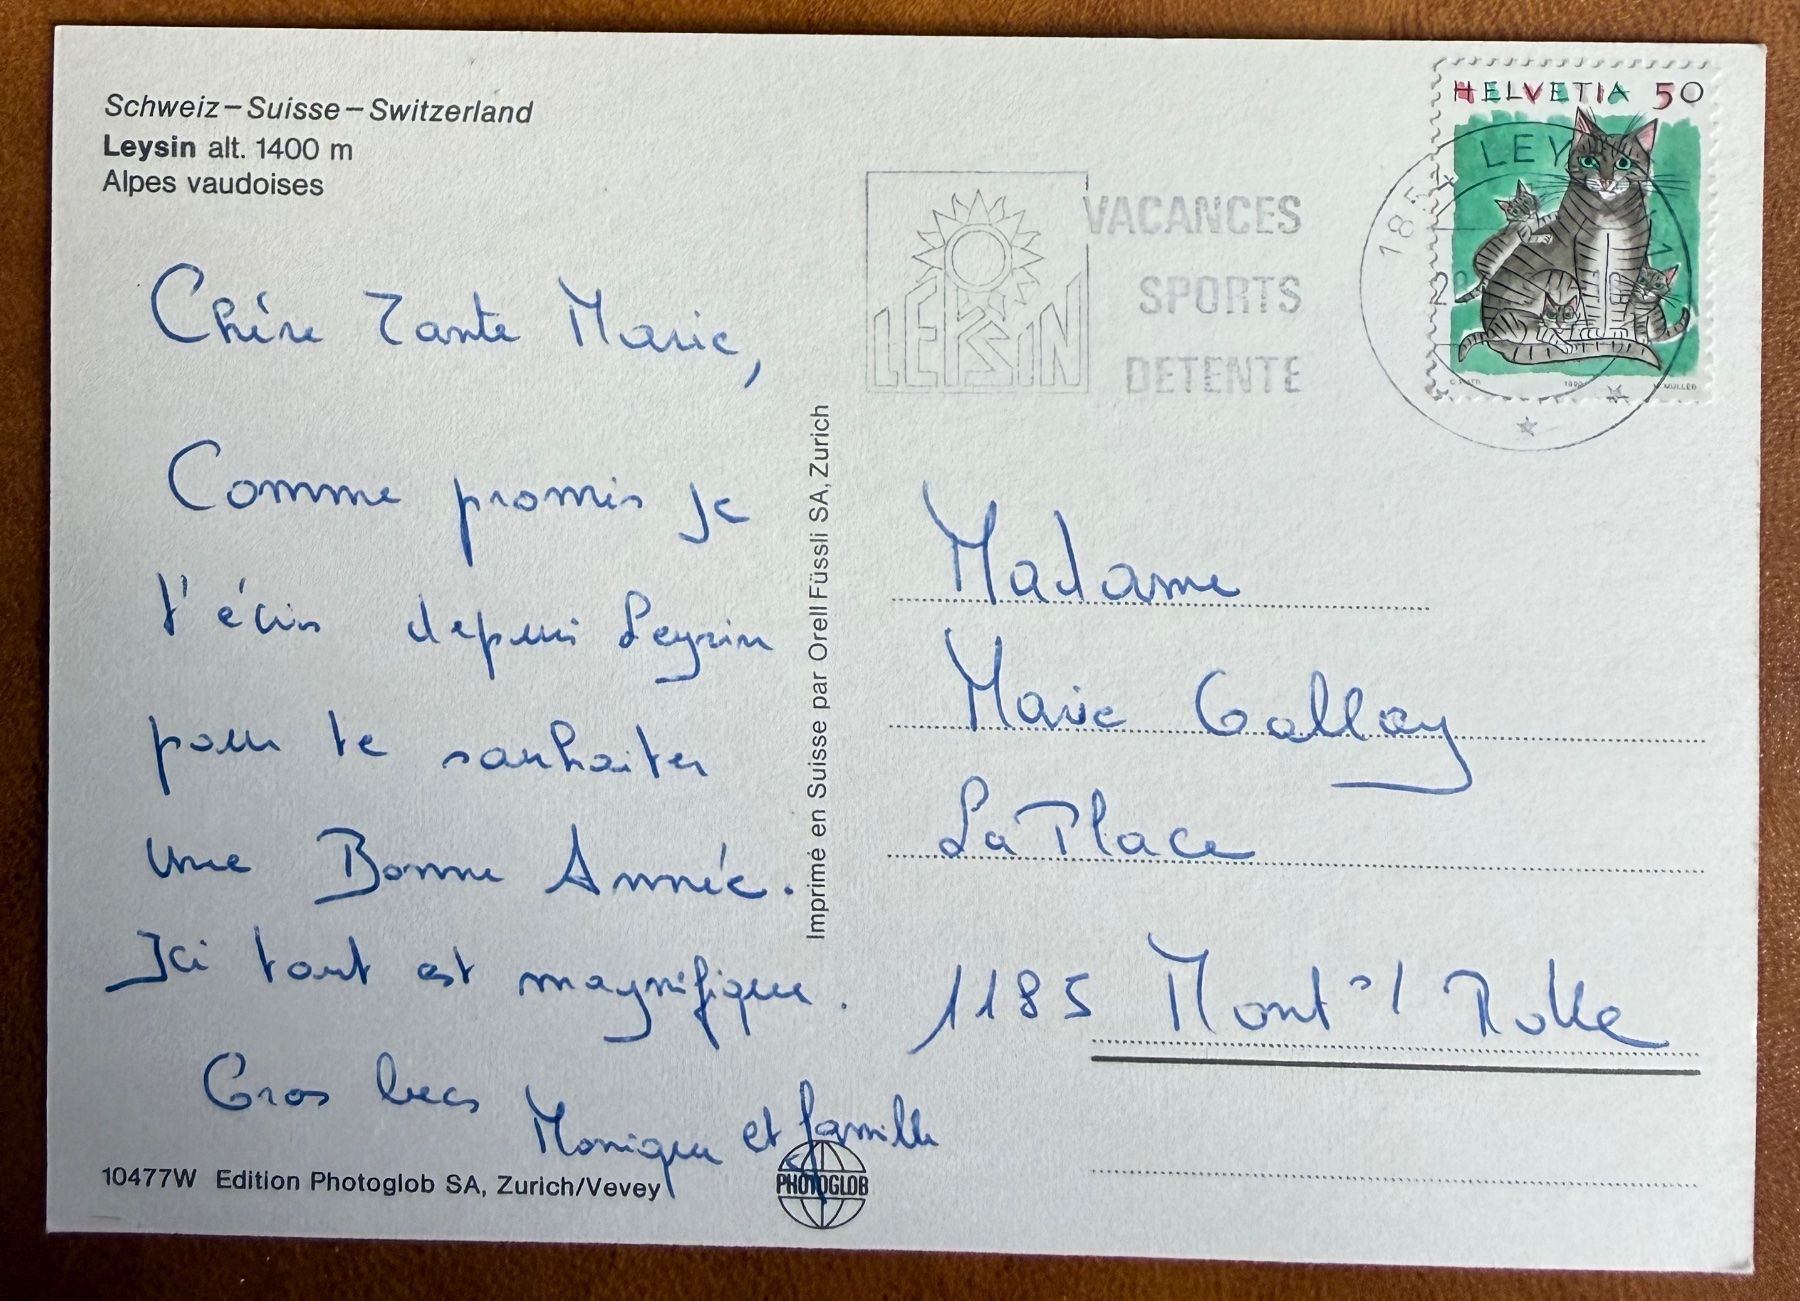 Schweiz–Suisse–Switzerland
Leysin alt. 1400 m
Alpes vaudoises
Chère Tante Marie,
Comme promis je
t'écris depuis Leysin
pour te souhaiter
une Bonne Année.
Ici tout est magnifique.
Gros becs
Monique et famille
10477W Edition Photoglob SA, Zurich/Vevey
PHOTOGLOB
Imprimé en Suisse par Orell Füssli SA, Zurich
LEYSIN
VACANCES
SPORTS
DETENTE
HELVETIA 50
1854
LEY
1990
Madame
Marie Gallay
La Place
1185 Mont s/ Rolle